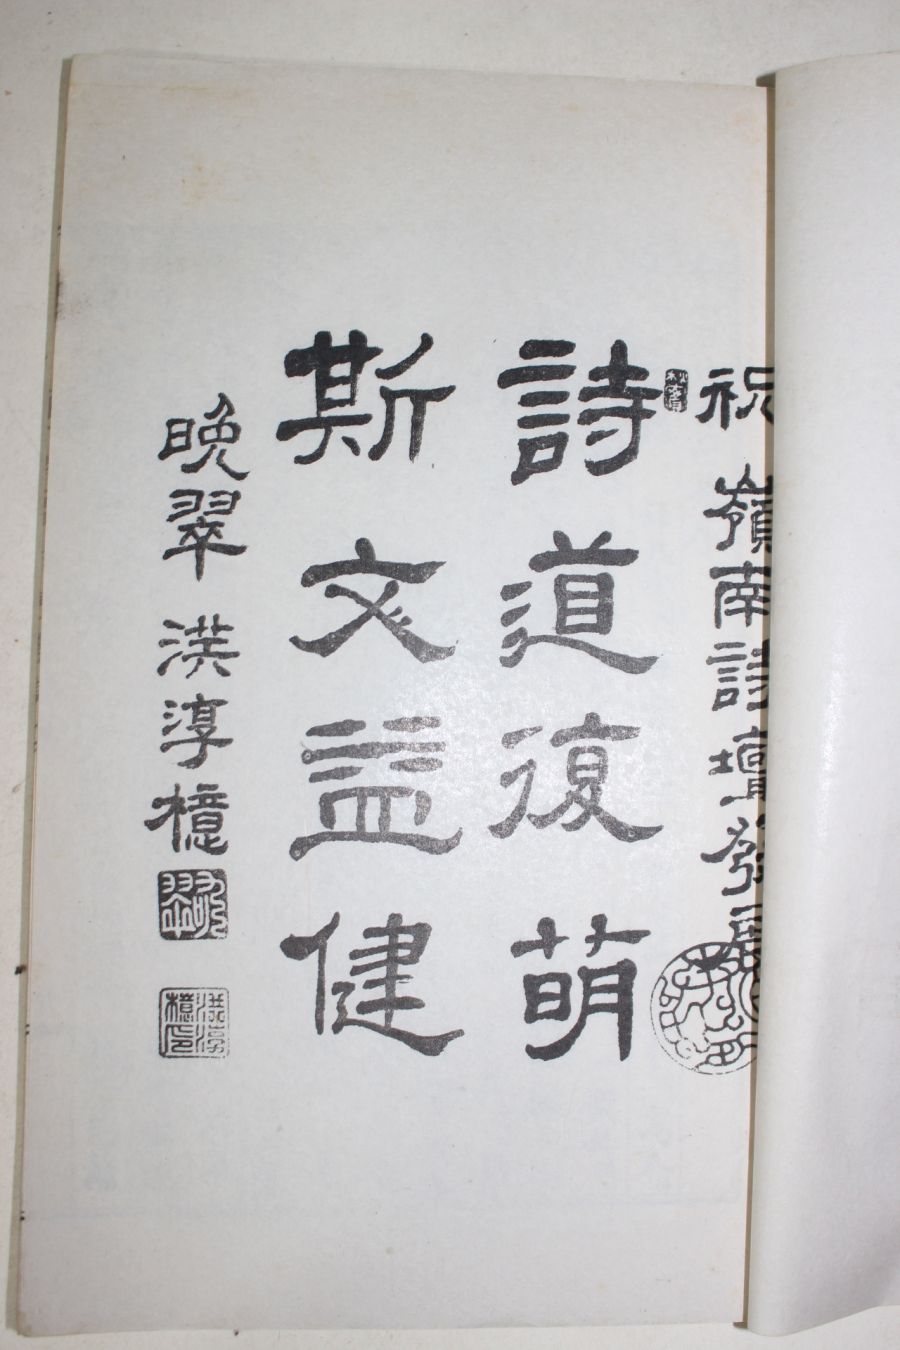 祝 嶺南詩壇發展
詩道復萌
斯文益健
晩翠 洪淳檍
晩翠
洪淳檍印